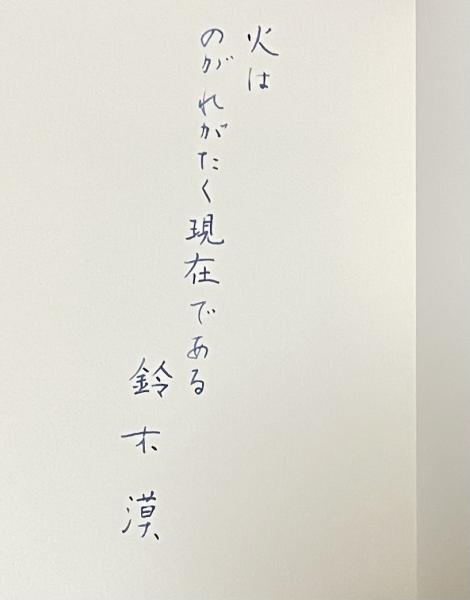 火は
のがれがたく現在である
鈴木漠